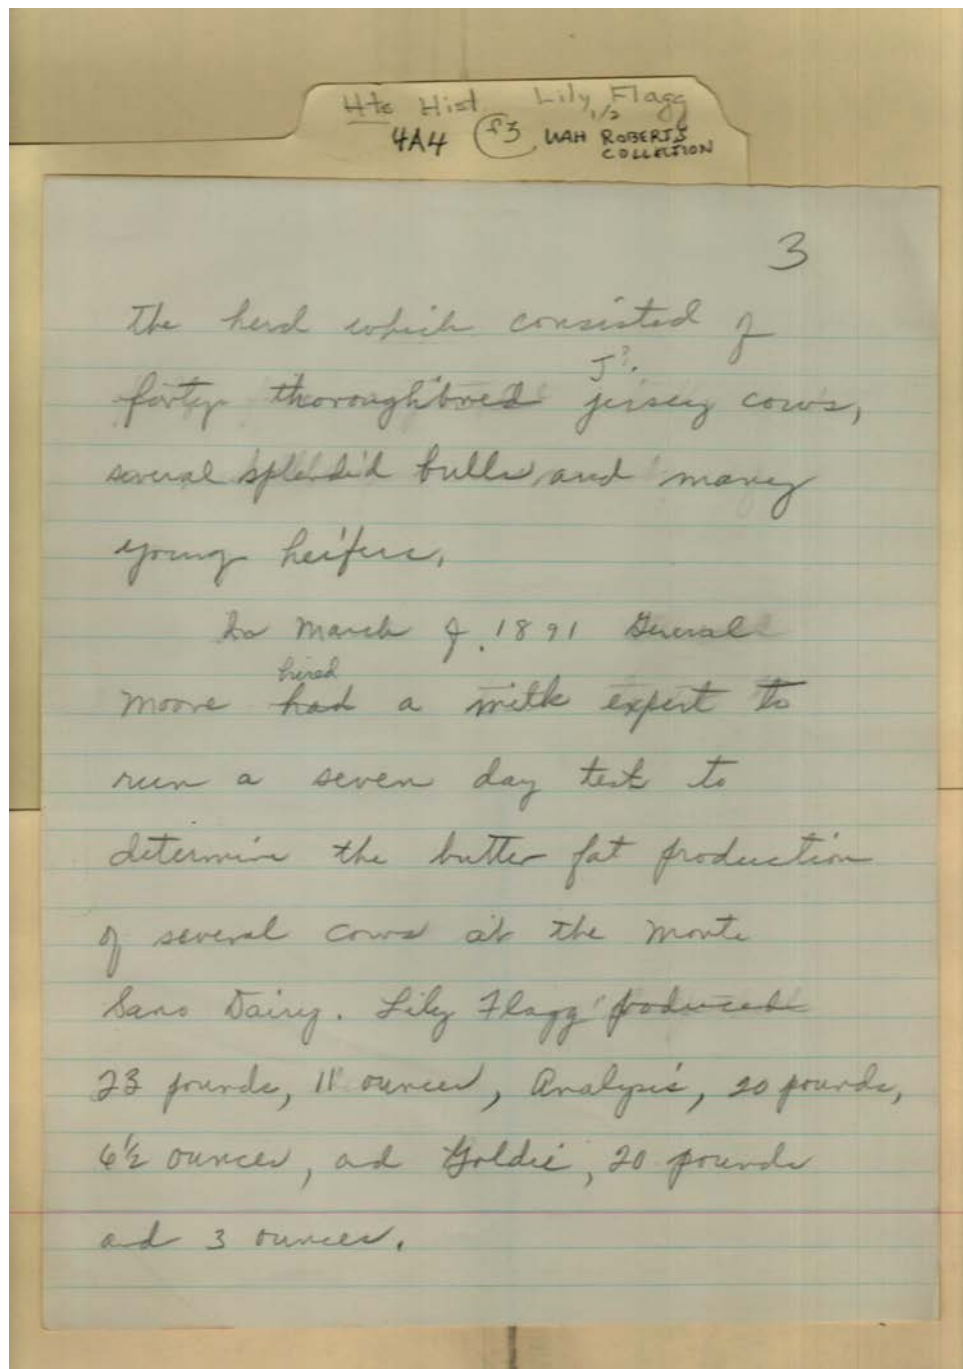 Hte Hist. Lily Flagg
1/2
4A4 f3 UAH ROBERTS
COLLECTION
3
The herd which consisted of
J?.
forty thoroughbred jersey cows,
several splendid bulls, and many
young heifers.
In March of 1891 General
hired
Moore had a milk expert to
run a seven day test to
determine the butter fat production
of several cows at the Monte
Sano Dairy. Lily Flagg produced
23 pounds, 11 ounces, Analysis, 20 pounds,
6½ ounces, ad Goldie, 20 pounds
and 3 ounces.